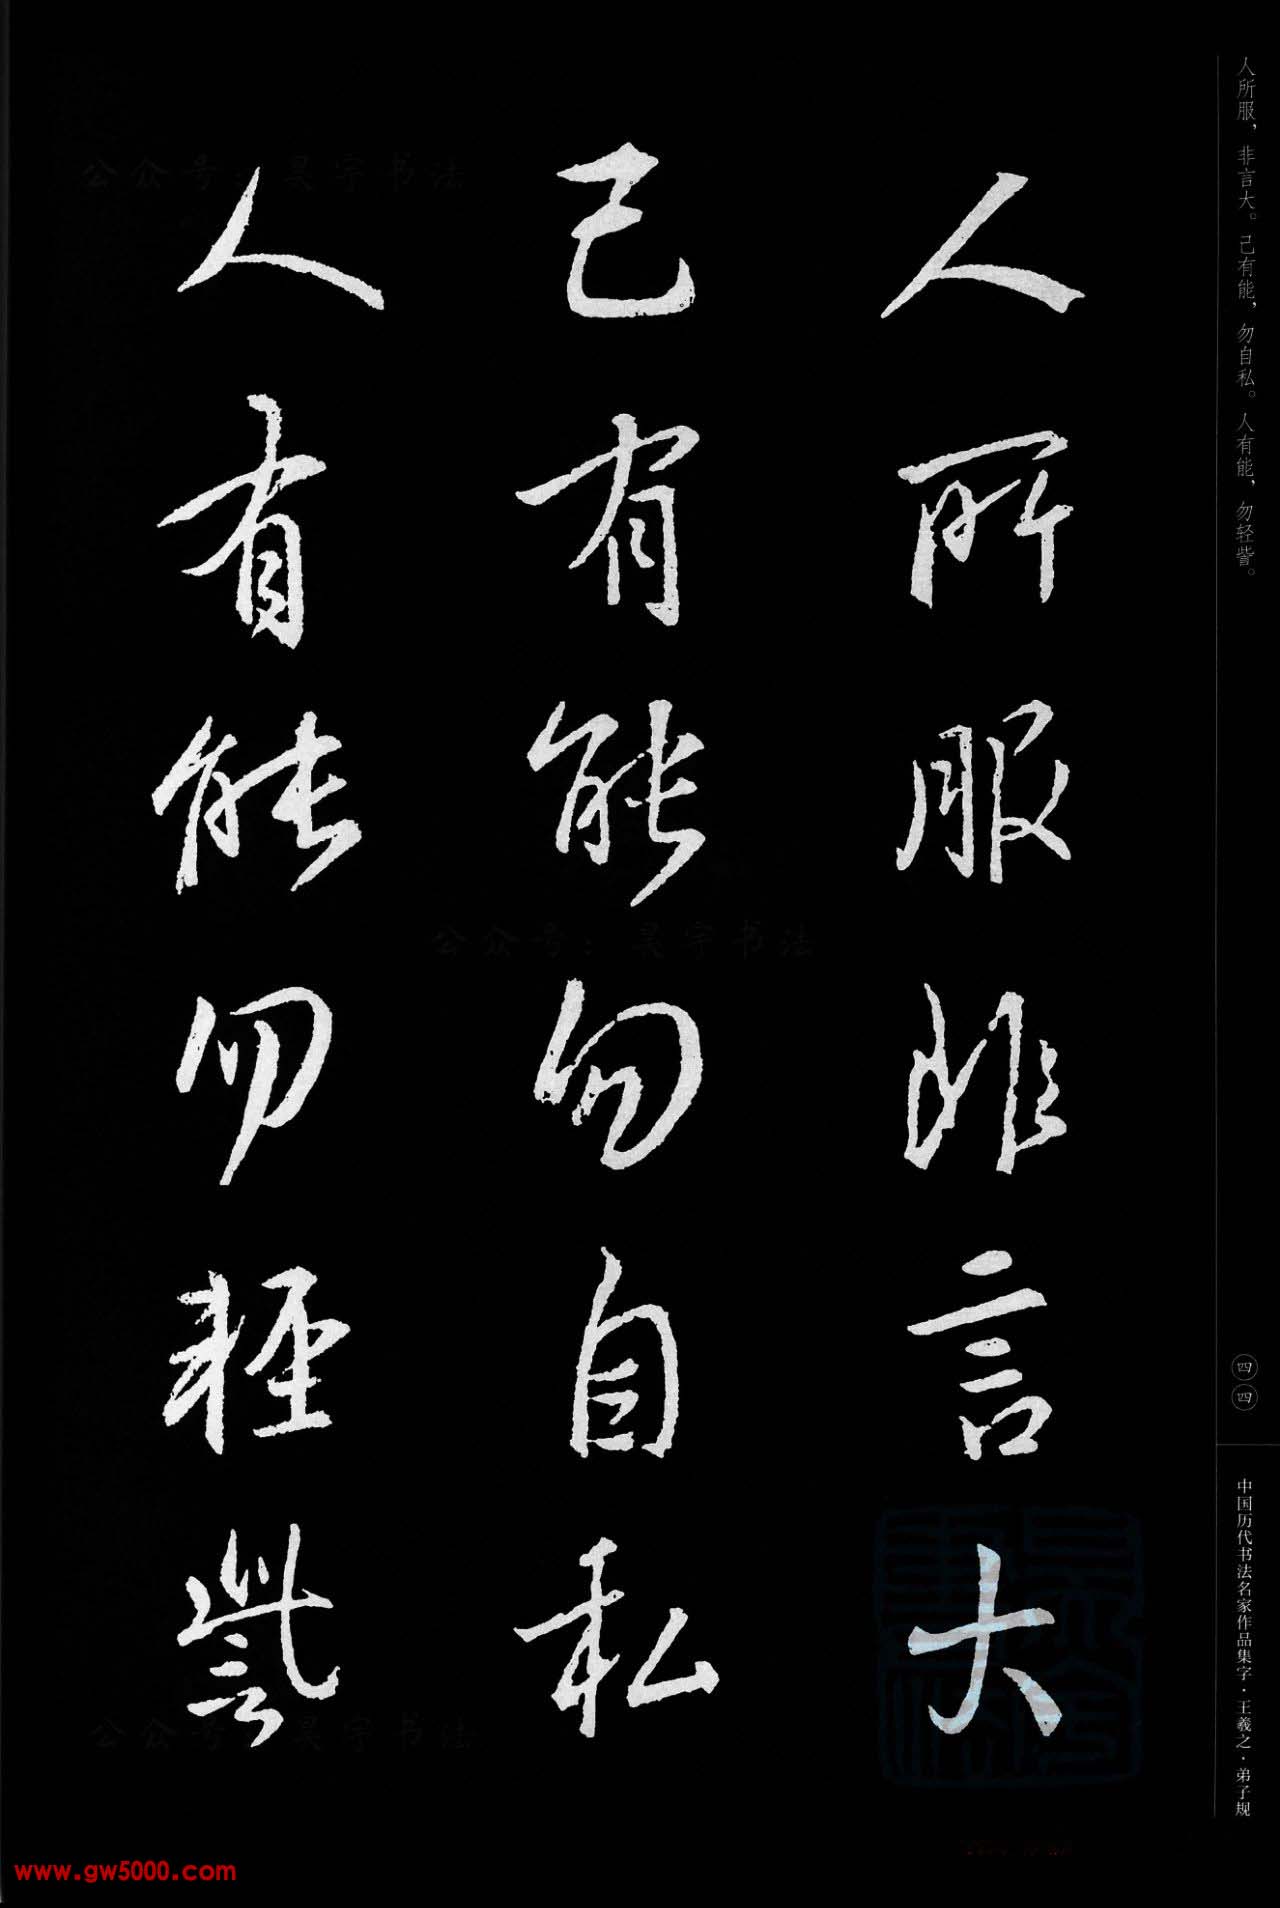 人所服，非言大。己有能，勿自私。人有能，勿轻訾。
人所服非言大
己有能勿自私
人有能勿輕訾
四四
中国历代书法名家作品集字·王羲之·弟子规
公众号：昊宇书法
公众号：昊宇书法
公众号：昊宇书法
www.gw5000.com